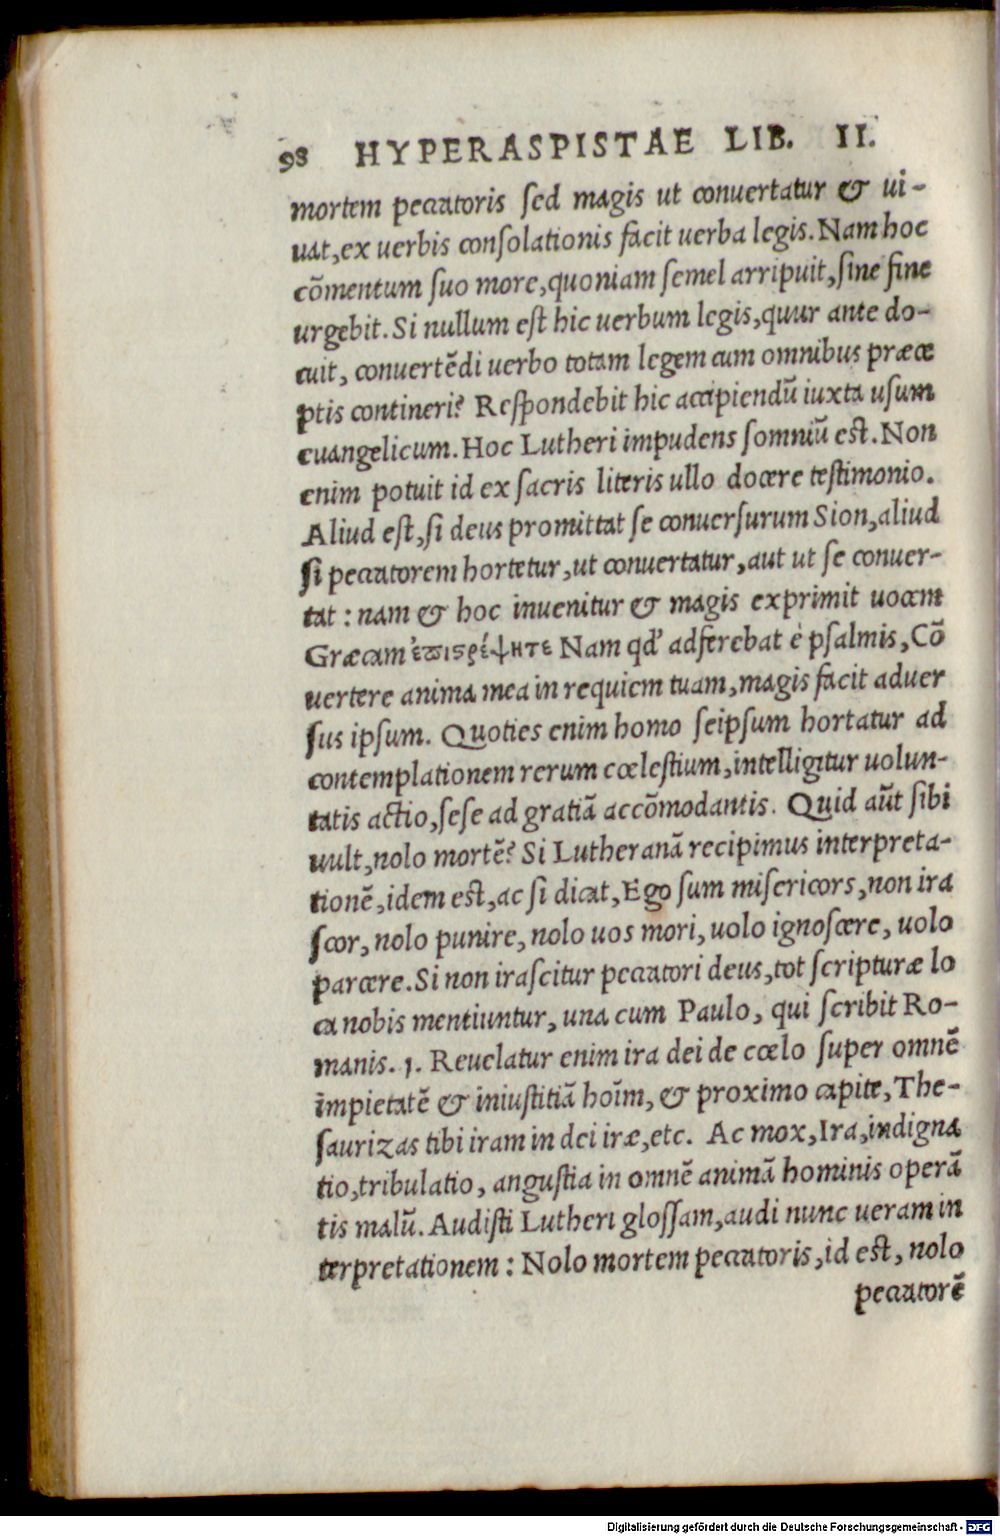 98 HYPERASPISTAE LIB. II.
mortem peccatoris sed magis ut conuertatur & ui-
uat, ex uerbis consolationis facit uerba legis. Nam hoc
cōmentum suo more, quoniam semel arripuit, sine fine
urgebit. Si nullum est hic uerbum legis, quur ante do-
cuit, conuertēdi uerbo totam legem cum omnibus præce
ptis contineri? Respondebit hic accipiendū iuxta usum
euangelicum. Hoc Lutheri impudens somniū est. Non
enim potuit id ex sacris literis ullo docere testimonio.
Aliud est, si deus promittat se conuersurum Sion, aliud
si peccatorem hortetur, ut conuertatur, aut ut se conuer-
tat: nam & hoc inuenitur & magis exprimit uocem
Græcam ἐπιστρέψητε Nam qd' adferebat è psalmis, Cō
uertere anima mea in requiem tuam, magis facit aduer
sus ipsum. Quoties enim homo seipsum hortatur ad
contemplationem rerum cœlestium, intelligitur uolun-
tatis actio, sese ad gratiā accōmodantis. Quid aūt sibi
uult, nolo mortē? Si Lutheranā recipimus interpreta-
tionē, idem est, ac si dicat, Ego sum misericors, non ira
scor, nolo punire, nolo uos mori, uolo ignoscere, uolo
parcere. Si non irascitur peccatori deus, tot scripturæ lo
ca nobis mentiuntur, una cum Paulo, qui scribit Ro-
manis. 1. Reuelatur enim ira dei de cœlo super omnē
impietatē & iniustitiā hoīm, & proximo capite, The-
saurizas tibi iram in dei iræ, etc. Ac mox, Ira, indigna
tio, tribulatio, angustia in omnē animā hominis operā
tis malū. Audisti Lutheri glossam, audi nunc ueram in
terpretationem: Nolo mortem peccatoris, id est, nolo
peccatorē
Digitalisierung gefördert durch die Deutsche Forschungsgemeinschaft - DFG